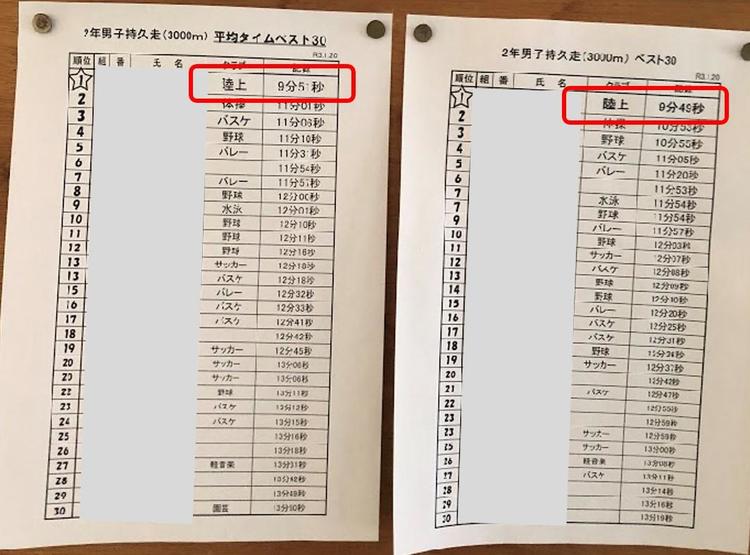 2年男子持久走(3000m) 平均タイムベスト30
R3.1.20
順位 組 番 氏 名 クラブ 記録
1 陸上 9分51秒
2 体操 11分01秒
3 バスケ 11分06秒
4 野球 11分10秒
5 バレー 11分31秒
6 11分54秒
7 バレー 11分57秒
8 野球 12分00秒
9 水泳 12分01秒
10 野球 12分10秒
11 野球 12分11秒
12 野球 12分16秒
13 サッカー 12分18秒
13 バスケ 12分18秒
15 バレー 12分32秒
16 バスケ 12分33秒
17 バスケ 12分41秒
18 12分42秒
19 サッカー 12分45秒
20 サッカー 13分06秒
20 サッカー 13分06秒
22 野球 13分11秒
23 バスケ 13分12秒
24 バスケ 13分15秒
25 13分16秒
26 13分18秒
27 軽音楽 13分31秒
28
29 13分49秒
30 園芸 13分50秒
2年男子持久走(3000m) ベスト30
R3.1.20
順位 組 番 氏 名 クラブ 記録
1 陸上 9分49秒
2 体操 10分53秒
3 野球 10分55秒
4 バスケ 11分05秒
5 バレー 11分20秒
6 11分53秒
7 水泳 11分54秒
7 野球 11分54秒
9 バレー 11分57秒
10 野球 12分03秒
11 サッカー 12分07秒
12 バスケ 12分08秒
13 野球 12分09秒
14 野球 12分10秒
15 バレー 12分20秒
16 バスケ 12分25秒
17 バスケ 12分31秒
18 野球
19 サッカー 12分37秒
20 12分42秒
21 バスケ 12分47秒
22
23 12分59秒
23 サッカー 12分59秒
25 サッカー 13分00秒
26 軽音楽 13分08秒
27 バスケ 13分11秒
28 13分14秒
29 13分16秒
30 13分19秒